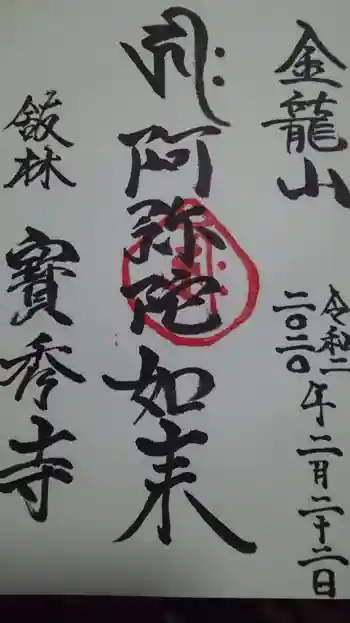 金龍山
令和二
二〇二〇年二月二十二日
ह्रीः
阿弥陀如来
舘林
寳秀寺